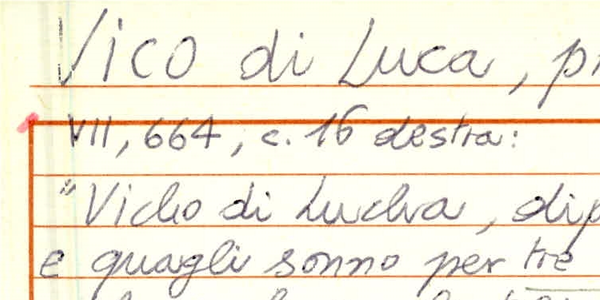 Vico di Luca, p
VII, 664, c. 16 destra:
"Vicho di Lucha, dip
e quagli sonno per tre